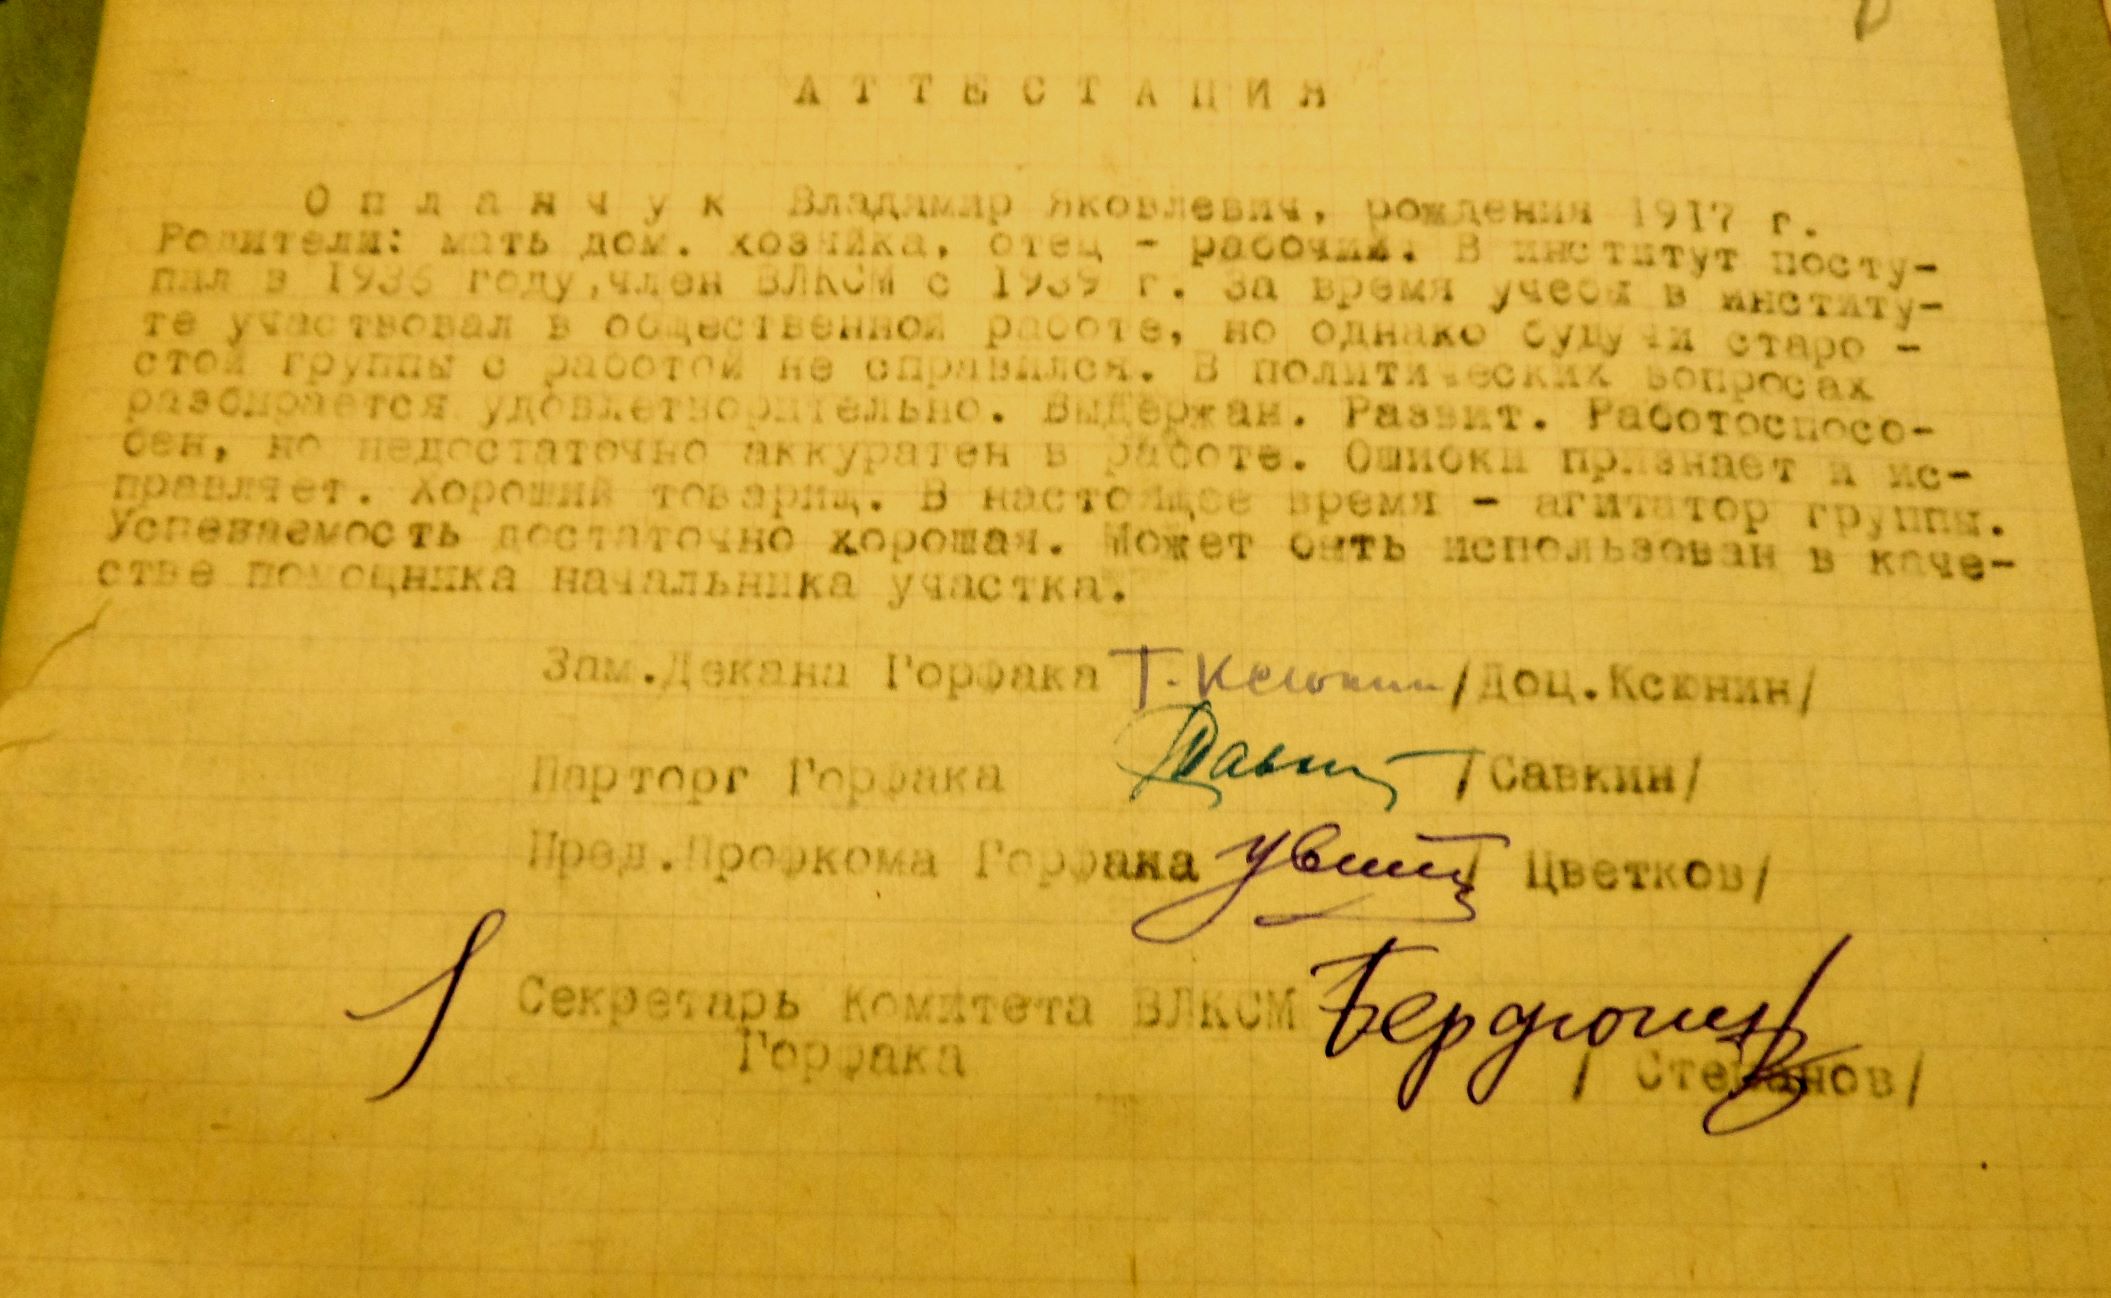 АТТЕСТАЦИЯ
Опланчук Владимир Яковлевич, рождения 1917 г.
Родители: мать дом. хозяйка, отец - рабочий. В институт посту-
пил в 1936 году, член ВЛКСМ с 1939 г. За время учебы в институ-
те участвовал в общественной работе, но однако будучи старо -
стой группы с работой не справился. В политических вопросах
разбирается удовлетворительно. Выдержан. Развит. Работоспосо-
бен, но недостаточно аккуратен в работе. Ошибки признает и ис-
правляет. Хороший товарищ. В настоящее время - агитатор группы.
Успеваемость достаточно хорошая. Может быть использован в каче-
стве помощника начальника участка.
Зам.Декана Горфака Т. Ксюнин /Доц.Ксюнин/
Парторг Горфака /Савкин/
Пред.Профкома Горфака / Цветков/
Секретарь Комитета ВЛКСМ
Горфака / Степанов/